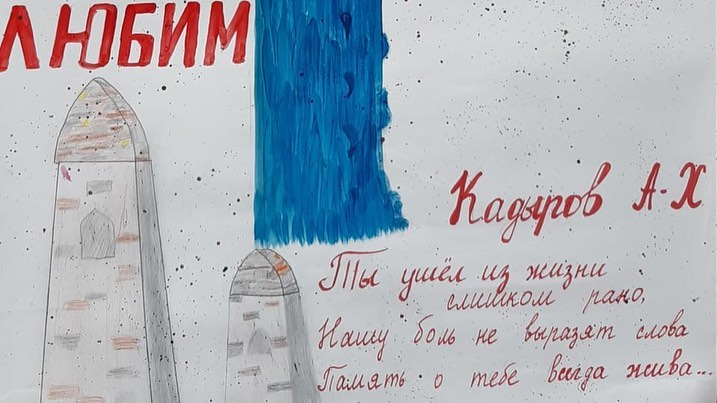 ЛЮБИМ
Кадыров А-Х
Ты ушёл из жизни
слишком рано,
Нашу боль не выразят слова
Память о тебе всегда жива...